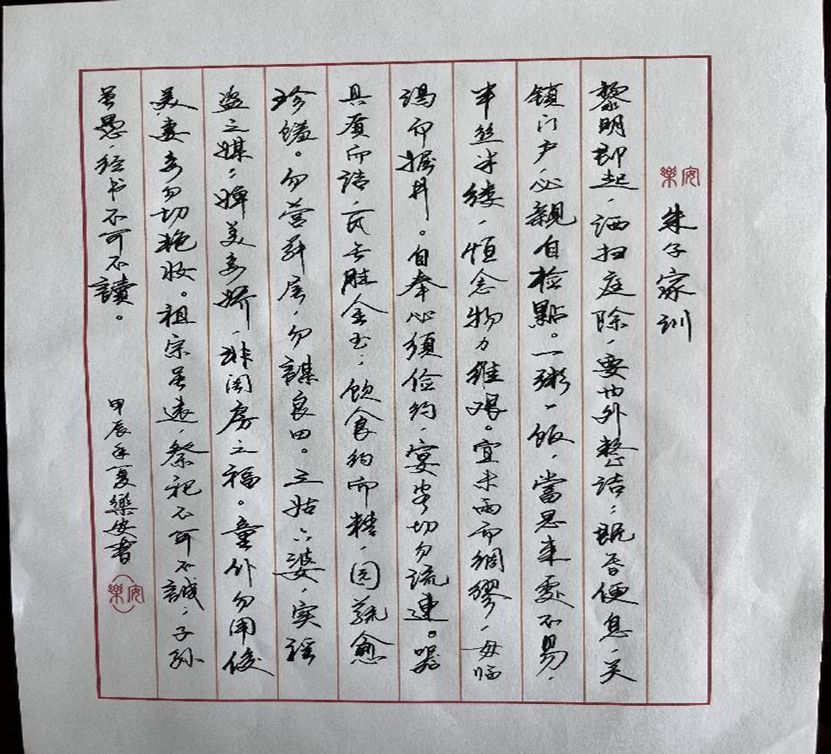 樂安 朱子家训
黎明即起，洒扫庭除，要内外整洁；既昏便息，关
锁门户，必親自检點。一粥一饭，當思来處不易，
半丝半缕，恒念物力维艰。宜未雨而绸缪，毋临
渴而掘井。自奉必须俭约，宴客切勿流連。器
具质而洁，瓦缶胜金玉；饮食约而精，园蔬愈
珍馐。勿营華屋，勿謀良田。三姑六婆，实淫
盗之媒；婢美妾娇，非闺房之福。童仆勿用俊
美，妻妾切勿艳妆。祖宗虽遠，祭祀不可不誠；子孙
虽愚，经书不可不讀。
甲辰年夏樂安書 樂安